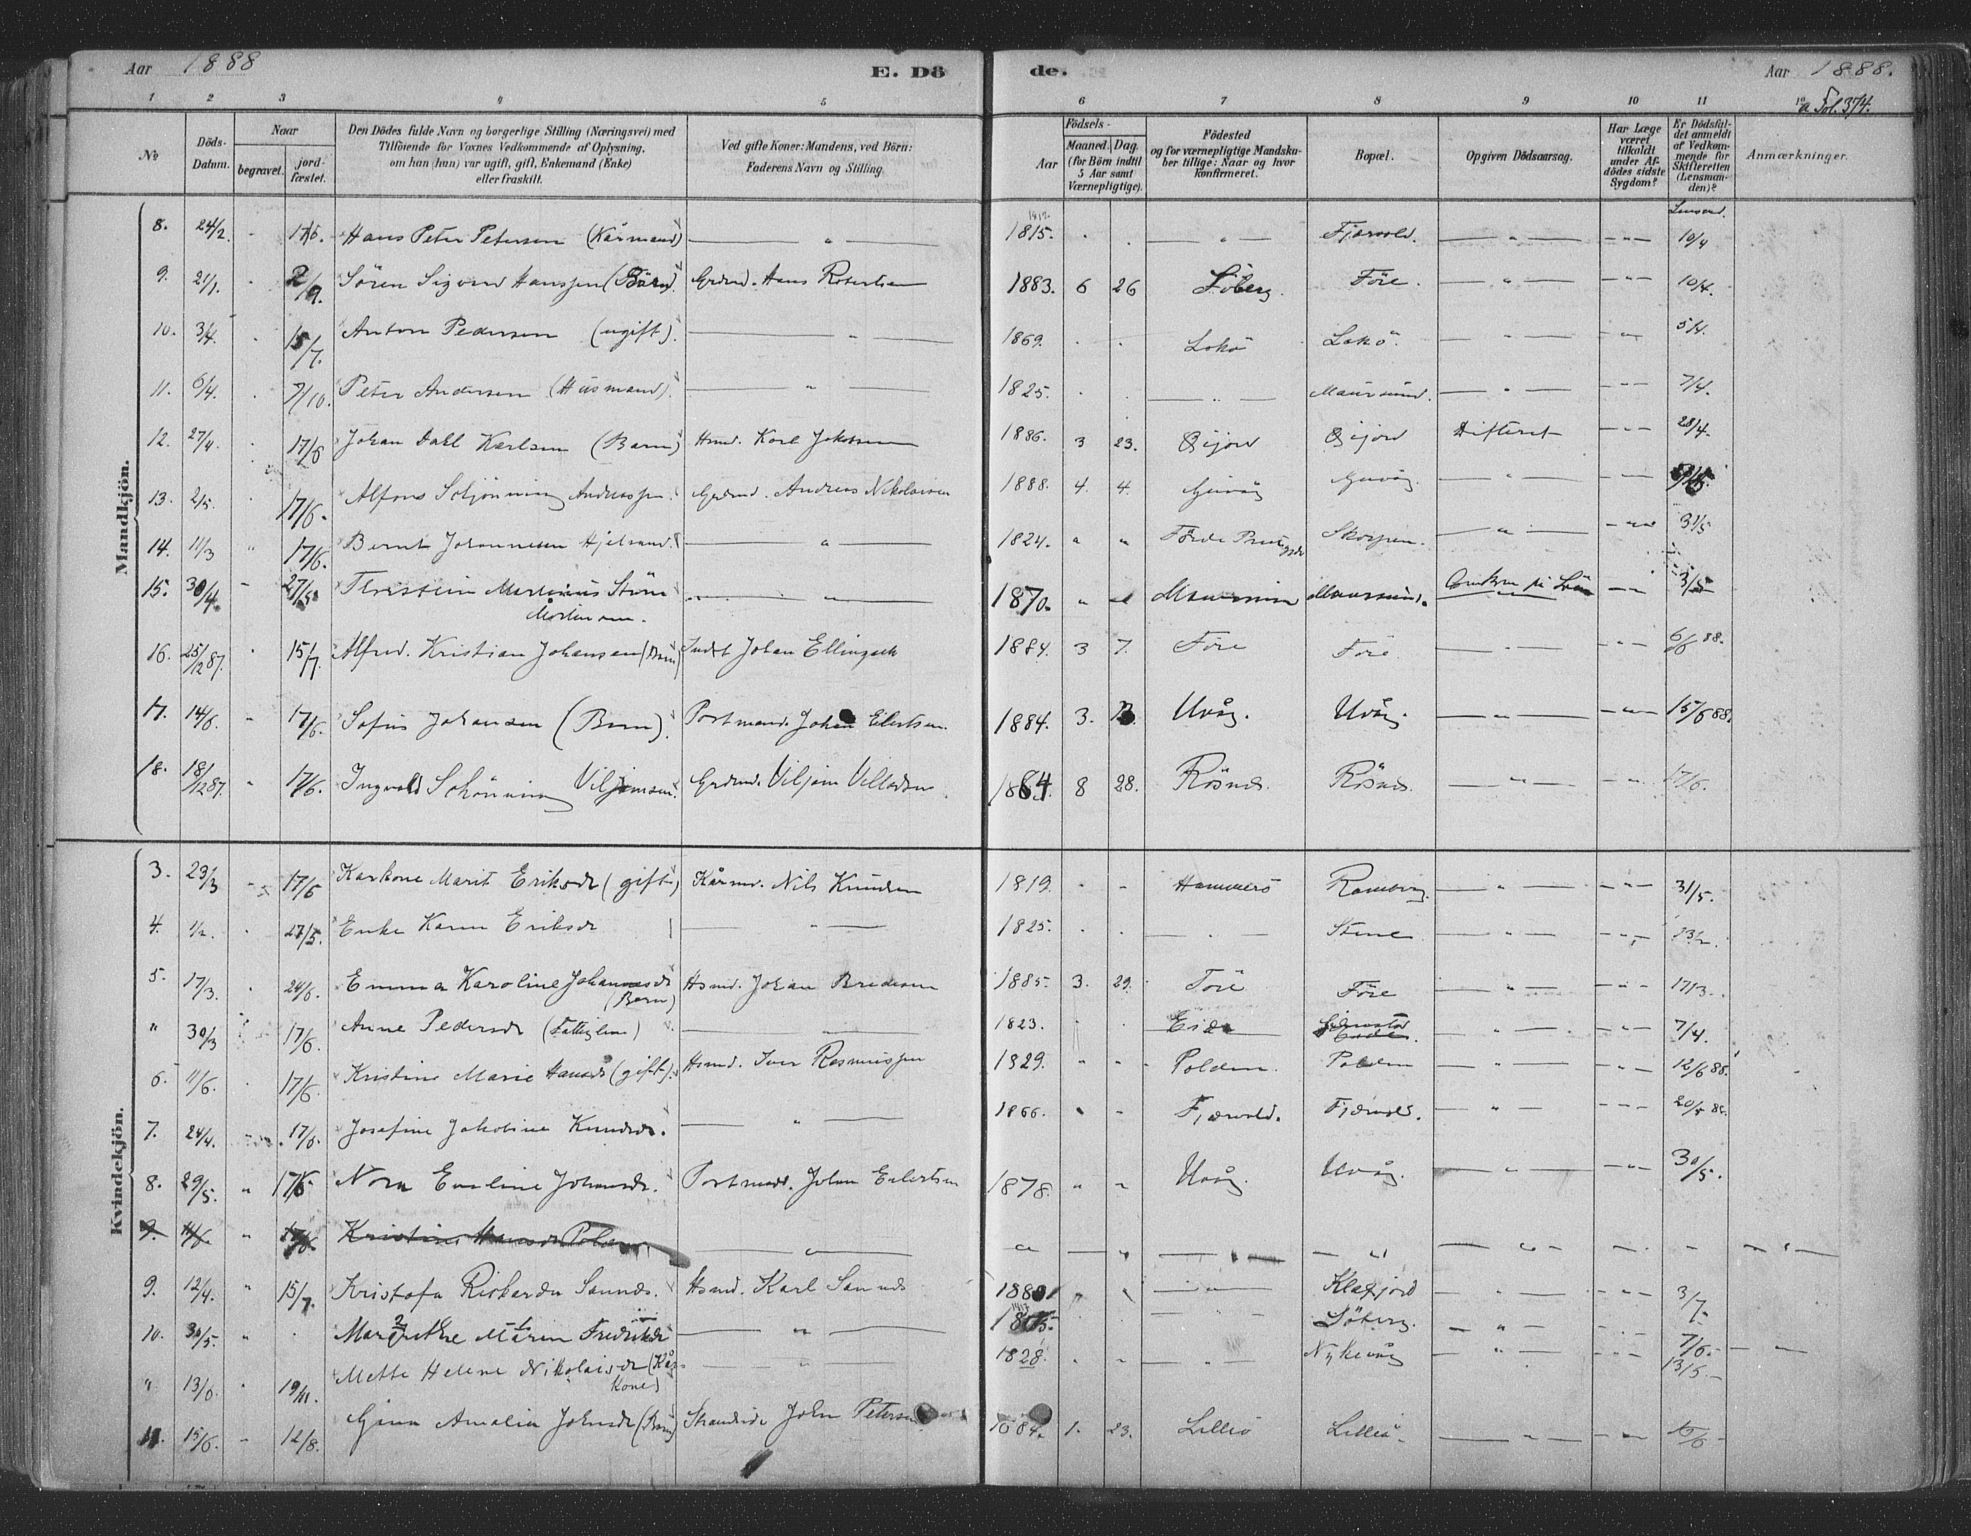 Aar 1888 E. Dö de. Aar 1888.
1 2 3 4 5 6 7 8 9 10 11 12
a Fol. 374.
No Döds-Datum. Naar begravet. jord-fæstet. Den Dödes fulde Navn og borgerlige Stilling (Næringsvei) med Tilföiende for Voxnes Vedkommende af Oplysning, om han (hun) var ugift, gift, Enkemand (Enke) eller fraskilt. Ved gifte Koner: Mandens, ved Börn: Faderens Navn og Stilling. Födsels- Aar Maaned. Dag. (for Börn indtil 5 Aar samt Værnepligtige). Födested og for værnepligtige Mandska-ber tillige: Naar og hvor konfirmeret. Bopæl. Opgiven Dödsaarsag. Har Læge været tilkaldt under Af-dödes sidste Sygdom? Er Dödsfal-det anmeldt af Vedkom-mende for Skifteretten (Lensman-den)? Anmærkninger.
Mandkjön.
8. 24/2. " 17/6. Hans Peter Petersen (Kårmand) — " — 1815. . . — " — Fjærvold. — " — - " - 10/4
9. 21/1. " 2/9. Sören Sigvard Hanssen (Barn) Grdmd. Hans Robertsen 1883. 6 26 Söberg. Före. — " — - " - 10/4.
10. 3/4. " 15/7. Anton Pedersen (ugift). — " — 1869. . . Lokö Lokö. — " — - " - 5/4.
11. 6/4. . 7/10. Peter Andersen (Husmand) — " — 1825. . . — " — Maursund. — " — - " - 7/4.
12. 27/4. . 17/6 Johan Dahl Karlsen (Barn) Hsmd. Karl Jakobsen 1886. 3 23. Gijord Gijord Difterit - " - 28/4.
13. 2/5. . 17/6. Alfons Schjönning Andreassen. Grdmd. Andreas Nikolaisen 1888. 4. 4. Guvåg Guvåg. — " — - " -
14. 11/3 " 17/6. Bernt Johannesen Hjelsand. — " — 1824. " " Förde Skorpen. — " — - " - 31/5
15. 30/4. " 27/5. Martinius Störm Mortensen. — " — 1870. " " Maursund Maursund. - " - 3/5
16. 25/12 87. " 15/7. Alfred Kristian Johansen (Barn) Indst Johan Ellingsen 1884. 3 7. Före Före — " — - " - 6/6 88.
17. 14/6. " 17/6. Sofus Johansen (Barn). Portmand. Johan Eilertsen. 1884. 3. Uvåg. Uvåg. — " — - " - 15/6 88.
18. 18/12 87. " 17/6. Ingvald Schönning Viljamsen. Grdmd. Viljam Villadsen 1884 8 28. Rösnes. Rösnes. — " — - " - 17/6.
Kvindekjön.
3. 23/3 " 17/6 Karkone Marit Eriksdr (gift) Kårmd. Nils Knudsen 1819. - - Hammerö Ramberg. — " — - " - 31/5.
4. 1/2. . 27/5. Enke Karen Eriksdr — " — 1825. . . — . — Stene — " — - " -
5. 17/3. . 24/6. Emma Karoline Johannesdr (Barn) Hsmd. Johan Bredesen 1885. 3. 29. Före Före — " — - " - 17/3.
" 30/3 " 17/6. Anne Pedersdr (Fattiglem) — " — 1823. . . Eide — " — - " - 7/4.
6. 11/6. . 17/6. Kristine Marie Hansdr (gift). Hsmd. Iver Rasmussen 1829. " " Polden. Polden — " — - " - 12/6 88.
7. 24/4. . 17/6. Josefine Jakobine Knudsdr. — " — 1866. " - Fjærvold. Fjærvold. — " — - " - 20/5 88.
8. 29/5. " 17/6 Nora Emeline Johansdr. Portmand. Johan Eilertsen 1878. " " Uvåg. Uvåg. — " — - " - 30/5.
9. 11/6 " 17/6 Kristine Hansdr Polden — " — " — " — " — — " — — " — - " - - — " —
9. 12/4. " 15/7. Kristofa Rikarda Samdr. Hsmd. Karl Samuels 1880 " " — " — Klaxjord — " — - " - 3/7.
10. 30/5. " . Margrethe Maren Fredriksdr — " — — " — Söberg. — " — - " - 7/6.
" 13/6. " 19/11. Mette Helene Nikolaisdr (Kår-Kone) — " — 1828. . . — " — Nykvåg — " — - " - 13/5. — " —
11. 15/6. - 12/8. Gina Amalia Johnsdr (Barn) Strandside John Petersen 1884. 1. 23. Lillö Lillö. — " — - " -